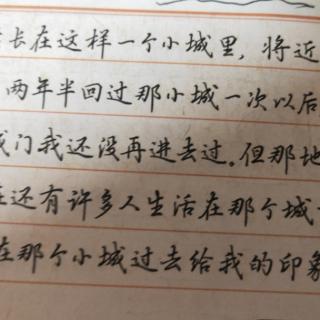 长在这样一个小城里，将近
两年半回过那小城一次以后
城门我还没再进去过。但那地
还有许多人生活在那个城
在那个小城过去给我的印象